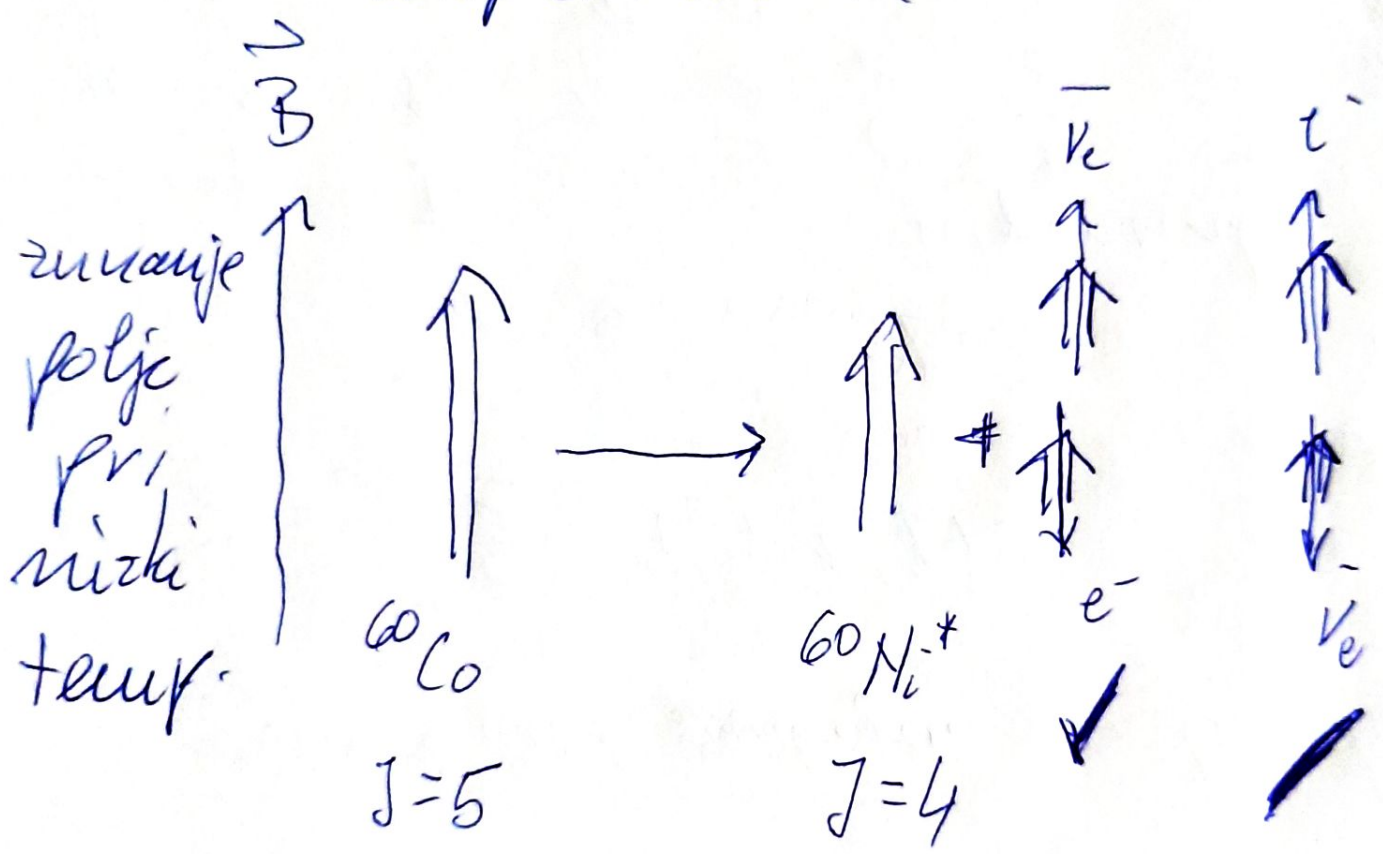 B
zunanje
polje
pri
nizki
temp.
⁶⁰Co
J=5
⁶⁰Ni*
J=4
ν̄e
e⁻
e⁻
ν̄e